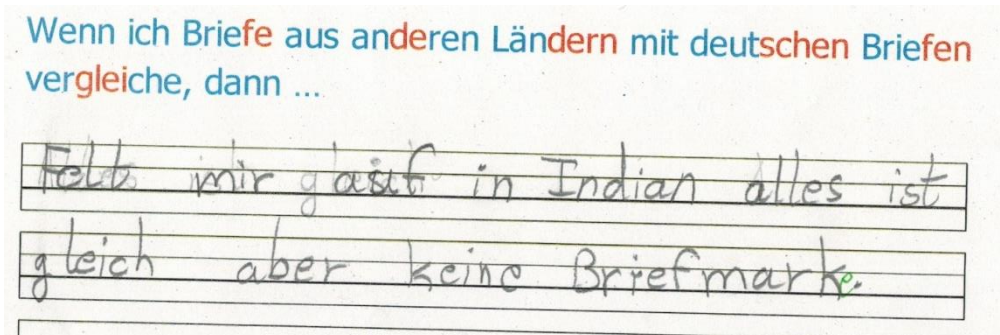 Wenn ich Briefe aus anderen Ländern mit deutschen Briefen
vergleiche, dann ...
Felt mir auf in Indian alles ist
gleich aber keine Briefmarke.